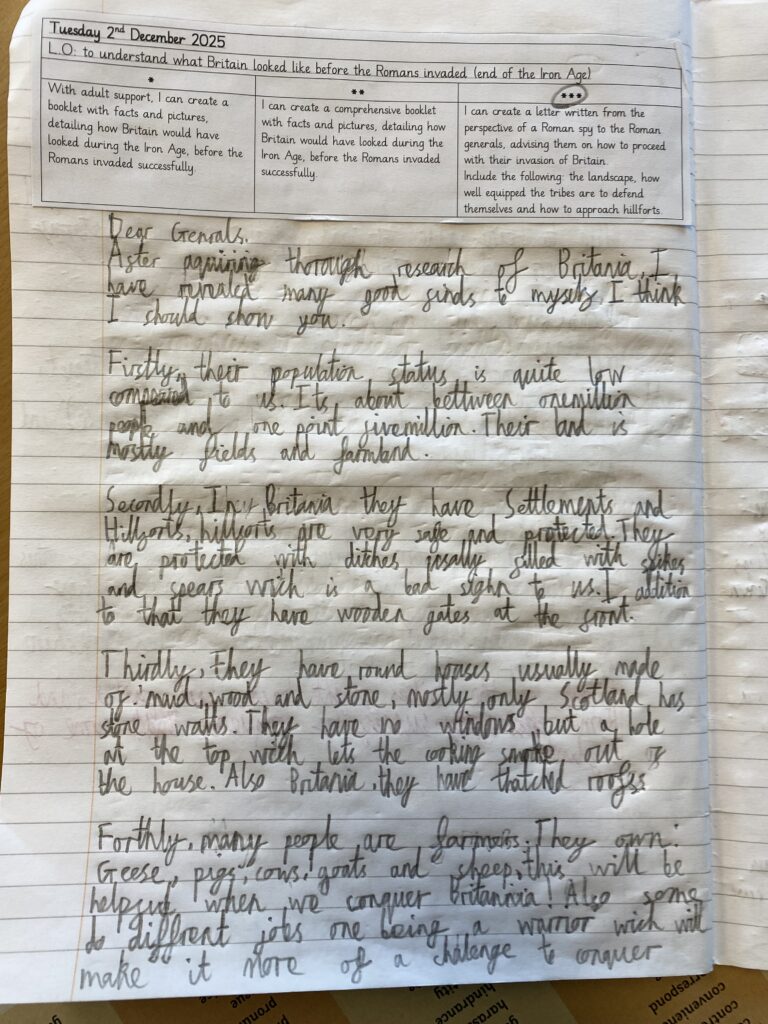 Tuesday 2nd December 2025
L.O: to understand what Britain looked like before the Romans invaded (end of the Iron Age)
*
With adult support, I can create a
booklet with facts and pictures,
detailing how Britain would have
looked during the Iron Age, before the
Romans invaded successfully.
**
I can create a comprehensive booklet
with facts and pictures, detailing how
Britain would have looked during the
Iron Age, before the Romans invaded
successfully.
***
I can create a letter written from the
perspective of a Roman spy to the Roman
generals, advising them on how to proceed
with their invasion of Britain.
Include the following: the landscape, how
well equipped the tribes are to defend
themselves and how to approach hillforts.
Dear Genrals.
After aquiring thorough research of Britania, I
have revealed many good finds to myself I think
I should show you.
Firstly, their population status is quite low
compared to us. Its about bettween one million
people and one point five million. Their land is
mostly fields and farmland.
Secondly, In Britania they have Settlements and
Hillforts, hillforts are very safe and protected. They
are protected with ditches filled with spikes
and spears wich is a bad sighn to us. I addition
to that they have wooden gates at the front.
Thirdly, they have round houses usually made
of: mud, wood and stone, mostly only Scotland has
stone walls. They have no windows but a hole
at the top wich lets the cooking smoke out
the house. Also Britania, they have thatched roofs
Forthly, many people are farmers. They own:
Geese, pigs, cows, goats and sheep, this will be
helpful when we conquer Britannia! Also some
do diffrent jobs one being a warrior wich will
make it more of a challenge to conquer
hindrance
correspond
convenient